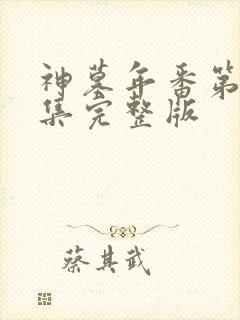 神墓年番第
集完整版
蔡其武